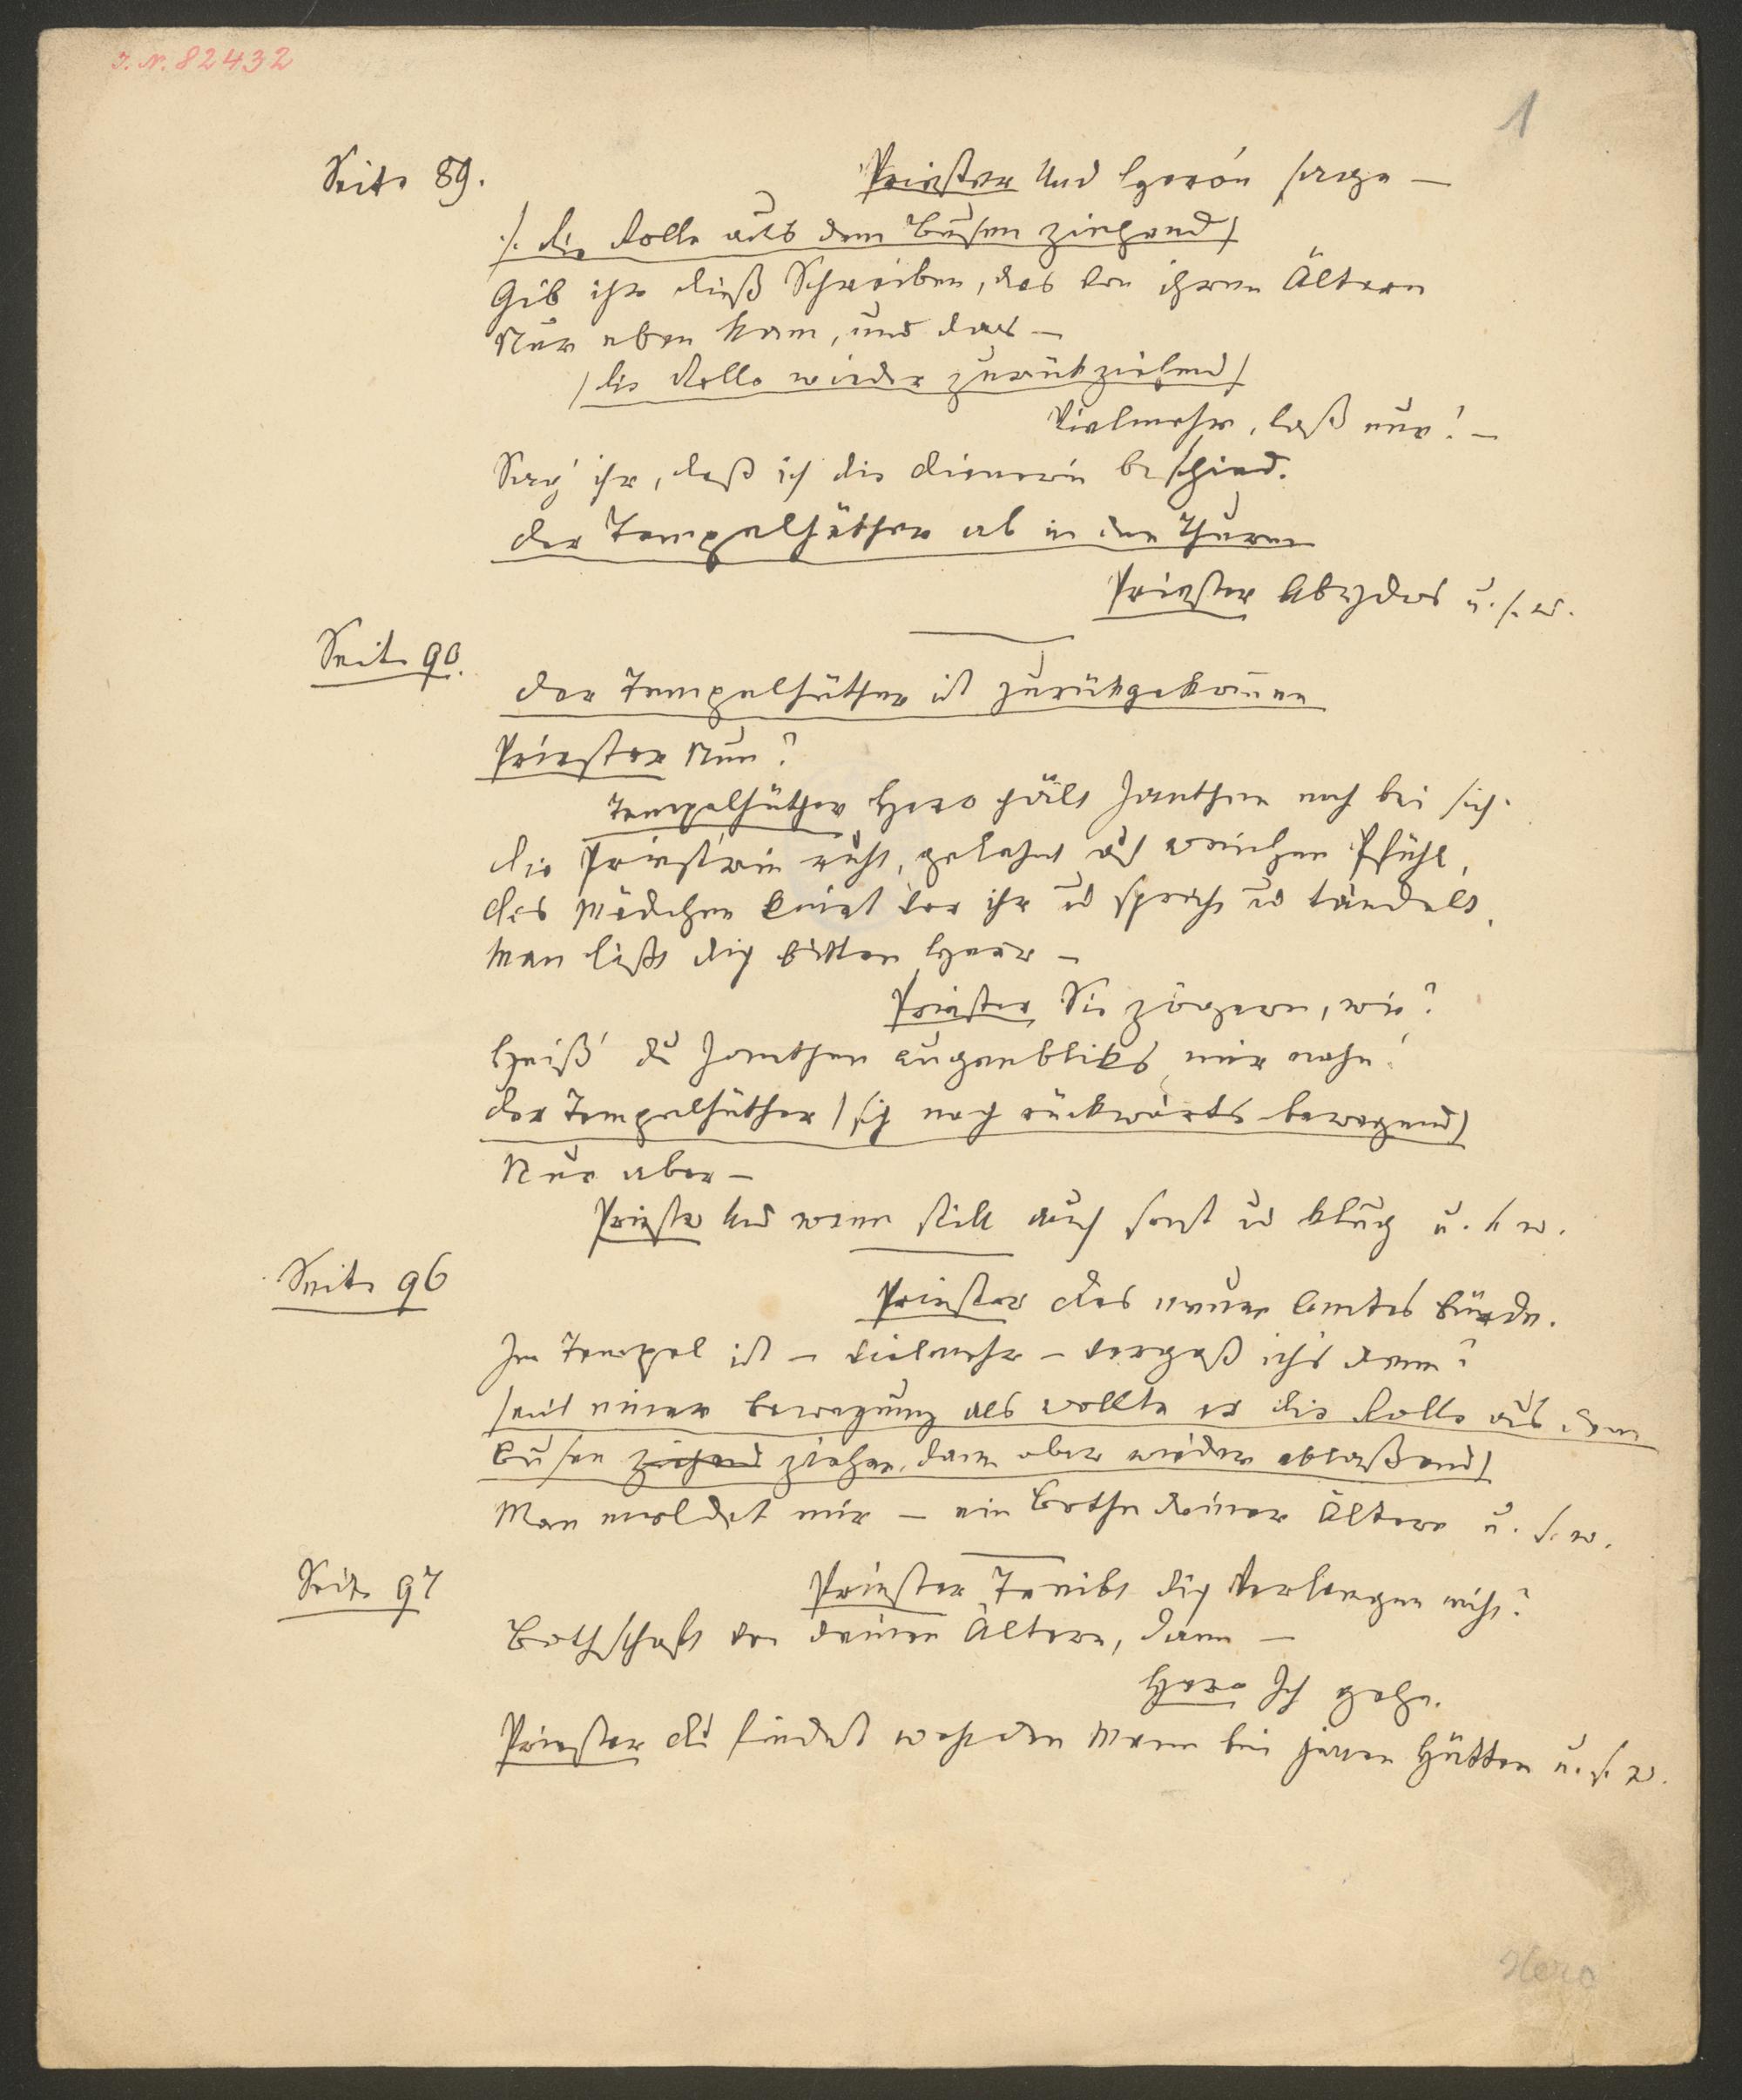 J. N. 82432
1
Seite 89.
Priester Und Heron sage —
/: die Rolle aus dem Busen ziehend/
Gib ihr dieß Schreiben, das von ihren Ältern
Nur eben kam, und das —
/die Rolle wieder zurükziehend/
Vielmehr, laß nur! —
Sag' ihr, daß ich die Dienerin beschied.
Der Tempelhüther ab in den Thurm
Priester Abydos u. s. w.
Seite 90.
Der Tempelhüther ist zurükgekom̄en
Priester Nun?
Tempelhüther Hero hält Janthen noch bei sich.
Die Priestrin ruht, gelehnt auf weichen Pfühl,
Das Mädchen kniet vor ihr u spricht u tändelt.
Man läßt dich bitten Herr —
Priester Sie zögern, wie?
Heiß' du Janthen augenbliks mir nahn!
Der Tempelhüther /sich nach rückwärts bewegend/
Nur aber —
Priester Und wenn still auch sonst u klug u. s w.
Seite 96
Priester Des neuen Amtes Bürde.
Im Tempel ist — vielmehr — vergaß ich's denn?
/mit einer Bewegung als wollte er die Rolle aus dem
Busen ziehend ziehen, dann aber wieder ablaßend/
Man meldet mir — ein Bothe deiner Ältern u. s. w.
Seite 97
Priester Treibt dich Verlangen nicht?
Bothschaft von deinen Ältern, dann —
Hero Ich gehe.
Priester Du findest wohl den Mann bei jenen Hütten u. s. w.
Hero